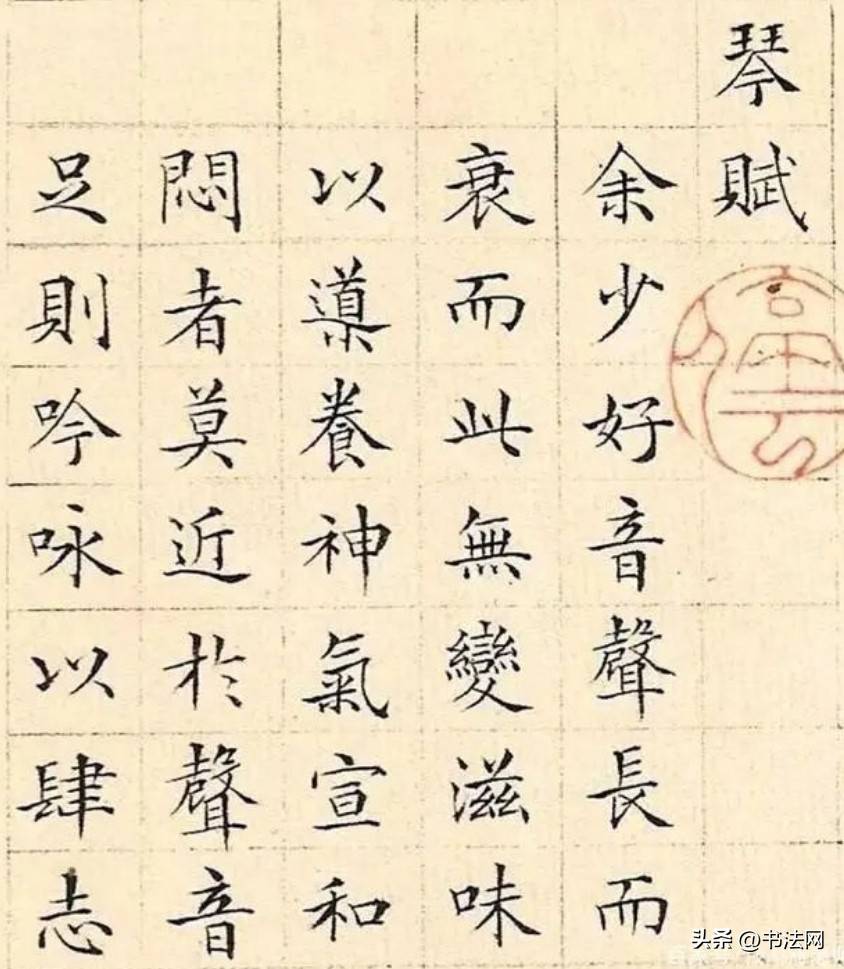 琴賦
余少好音聲長而
衰而此無變滋味
以導養神氣宣和
悶者莫近於聲音
足則吟咏以肆志
头条 @书法网